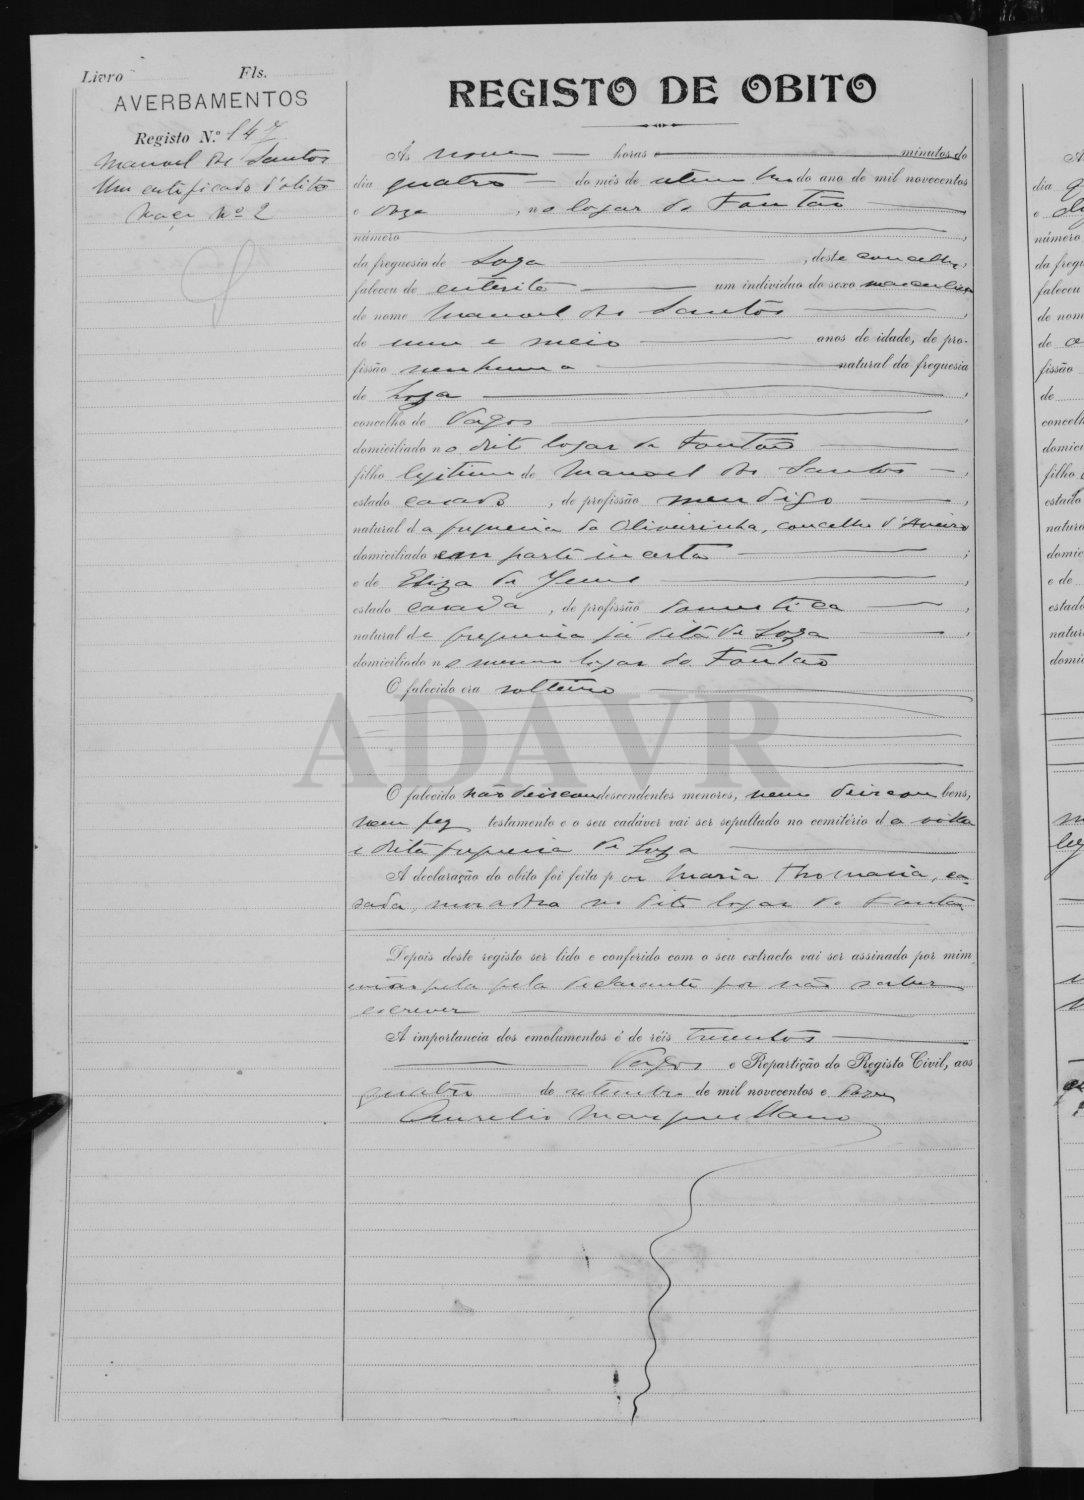 Livro Fls.
AVERBAMENTOS
Registo N.º 147
Manuel dos Santos
Um certificado d'obito
Maço Nº 2
REGISTO DE OBITO
Ás nove horas minutos do
dia quatro do mês de setembro do ano de mil novecentos
e doze, no logar de Fontão
número
da freguesia de Soza, deste concelho,
faleceu de enterite um individuo do sexo masculino
de nome Manuel dos Santos
de um e meio anos de idade, de pro-
fissão nenhuma natural da freguesia
de Soza,
concelho de Vagos,
domiciliado no dito logar de Fontão
filho legitimo de Manoel dos Santos,
estado casado, de profissão mendigo,
natural da freguesia da Oliveirinha, concelho d'Aveiro
domiciliado em parte incerta;
e de Eliza de Jesus,
estado casada, de profissão domestica,
natural da freguesia já dita de Soza,
domiciliado no mesmo logar de Fontão
O falecido era solteiro
ADAVR
O falecido não deixou descendentes menores, nem deixou bens,
nem fez testamento e o seu cadáver vai ser sepultado no cemitério da
dita freguesia de Soza
A declaração do obito foi feita por Maria Thomasia, ca-
sada, moradora no dito logar de Fontão
Depois deste registo ser lido e conferido com o seu extracto vai ser assinado por mim,
pela declarante por não saber
escrever
A importancia dos emolumentos é de réis trezentos
Vagos e Repartição do Registo Civil, aos
quatro de setembro de mil novecentos e doze
Aurelio Marques Mano